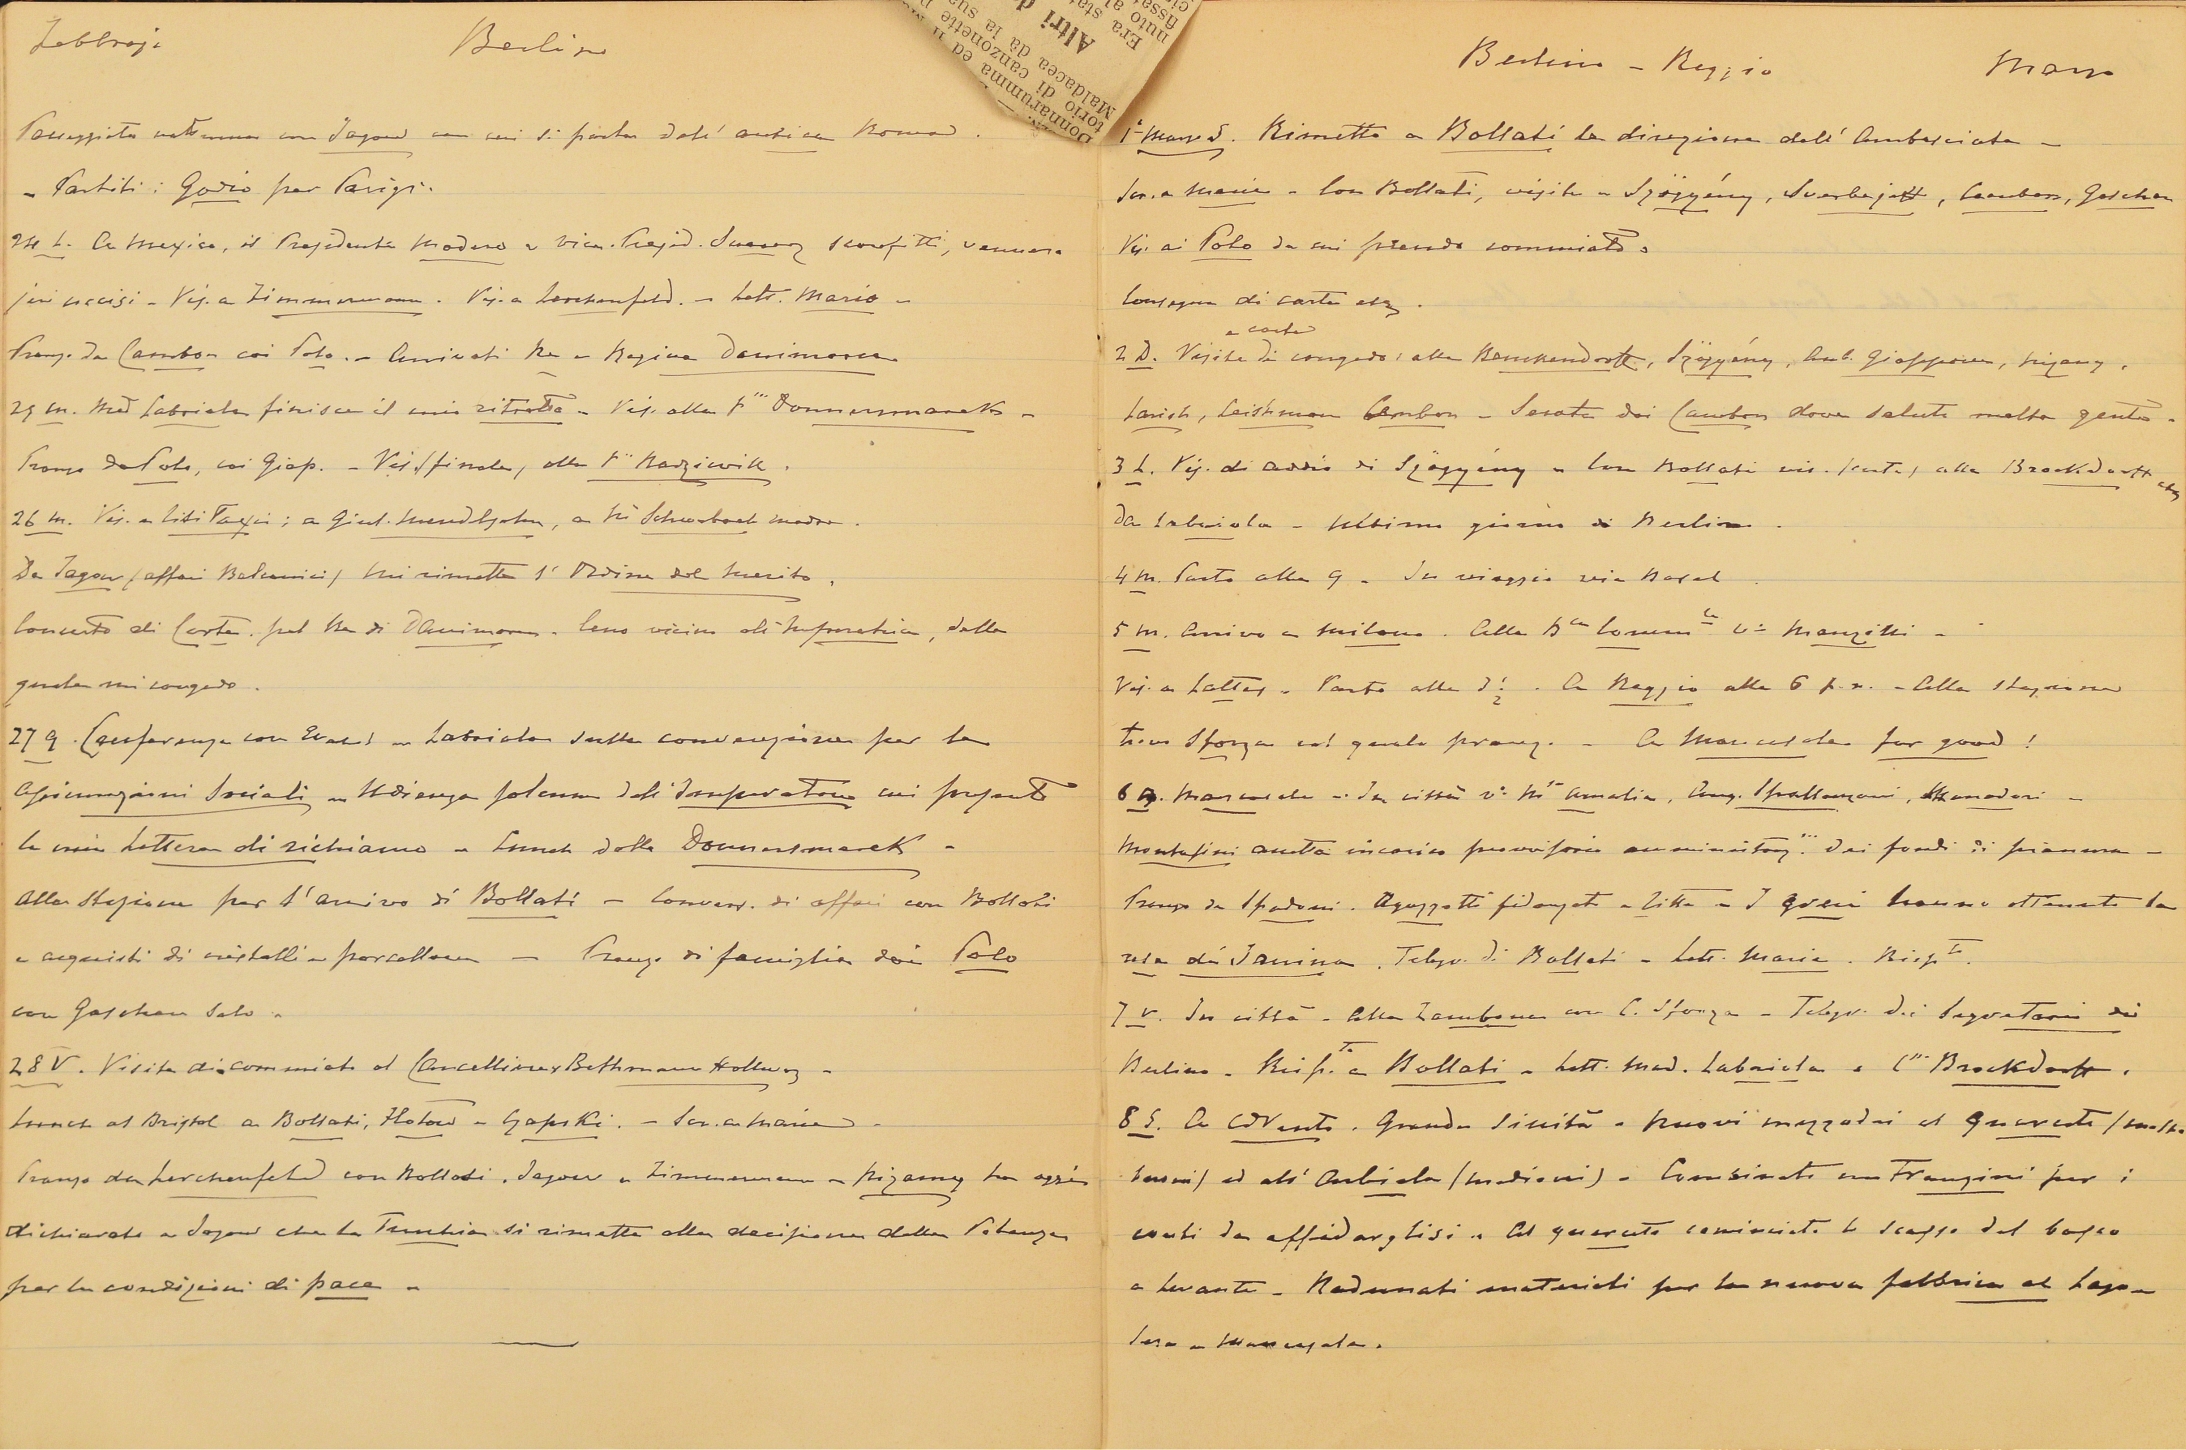 Febbraio Berlino
Passeggiata notturna con Jagow con cui si parla dell'antica Roma.
- Partiti: Godio per Parigi.
24 L. A Mexico, il Presidente Madero e Vice-Presid. Suarez sconfitti, vennero
jeri uccisi - Vis. a Zimmermann. Vis. a Lerchenfeld. - Lett. Mario -
Pranzo da Cambon coi Polo. - Arrivati Re e Regina Danimarca
25 m. Mad. Labriola finisce il mio ritratto - Vis. alla Donnersmarck -
Pranzo da Polo, coi Giap. - Vis. (finale) alla Radziwill.
26 m. Vis. a Titi Taxis; a Giul. Mendelssohn, a Schwabach madre.
Da Jagow (affari Balcanici) mi rimette l'Ordine del Merito.
Concerto di Corte pel Re di Danimarca. Ceno vicino all'Imperatrice, dalla
quale mi congedo.
27 g. Conferenza con e Labriola sulla convenzione per le
Assicurazioni Sociali - Udienza solenne dell'Imperatore cui presento
le mie lettere di richiamo - Lunch dalla Donnersmarck -
Alla stazione per l'arrivo di Bollati - Convers. di affari con Bollati
e acquisti di cristalli e porcellane - Pranzo di famiglia dai Polo
con Goschen solo -
28 V. Visita di commiato al Cancelliere Bethmann Hollweg -
Lunch al Bristol a Bollati, Flotow e Czapski. - Scr. a Maria -
Pranzo da Lerchenfeld con Bollati, Jagow e Zimmermann - Nizamy ha oggi
dichiarato a Jagow che la Turchia si rimette alla decisione delle Potenze
per le condizioni di pace -
Berlino - Reggio Marzo
1° Marzo S. Rimetto a Bollati la direzione dell'Ambasciata -
Scr. a Maria - Con Bollati, visite a Szögyény, Swerbejeff, Cambon, Goschen
Vis. ai Polo da cui prendo commiato.
Consegna di carte etc.
e carte
2 D. Visite di congedo: alla Benckendorff, Szögyény, Amb. Giappone, Nizamy,
Larisch, Leishman Cambon - Serata dai Cambon dove saluto molta gente.
3 L. Vis. di addio di Szögyény - Con Bollati vis. (carte) alla Brockdorff etc
Da Labriola - Ultimo giorno di Berlino.
4 M. Parto alle 9 - In viaggio via Basel
5 m. Arrivo a Milano. Alla Banca Comm.le v° Manzilli -
Vis. a Lattes - Parto alle 3 1/2. A Reggio alle 6 p.m. - Alla stazione
trovo Sforza col quale pranzo. - A Mancasale for good!
6 g. Mancasale - In città v° Amalia, Ang. Spallanzani, Manodori -
Montasini accetta incarico provvisorio amministraz. dei fondi di pianura -
Pranzo da Spadoni. Aguzzotti fidanzato a Litta - I greci hanno ottenuto la
resa di Janina. Telegr. di Bollati - Lett. Maria. Risp.to.
7 v. In città - Alla Zambona con C. Sforza - Telegr. dei Segretari di
Berlino - Risp.to a Bollati - Lett. Mad. Labriola e Brockdorff.
8 S. A Cadvento. Grande siccità - Nuovi mezzadri al Querceto
ed all'Arbiola (mediocri) - Combinato con Franzini per i
conti da affidarglisi. - Al Querceto cominciato lo scasso del bosco
a levante - Radunati materiali per la nuova fabbrica al Lago -
Sera a Mancasale.
Donnarumma ed
torio di canzonette
Maldacea dà la sua
Altri d
Era sta
nuto al
fissa